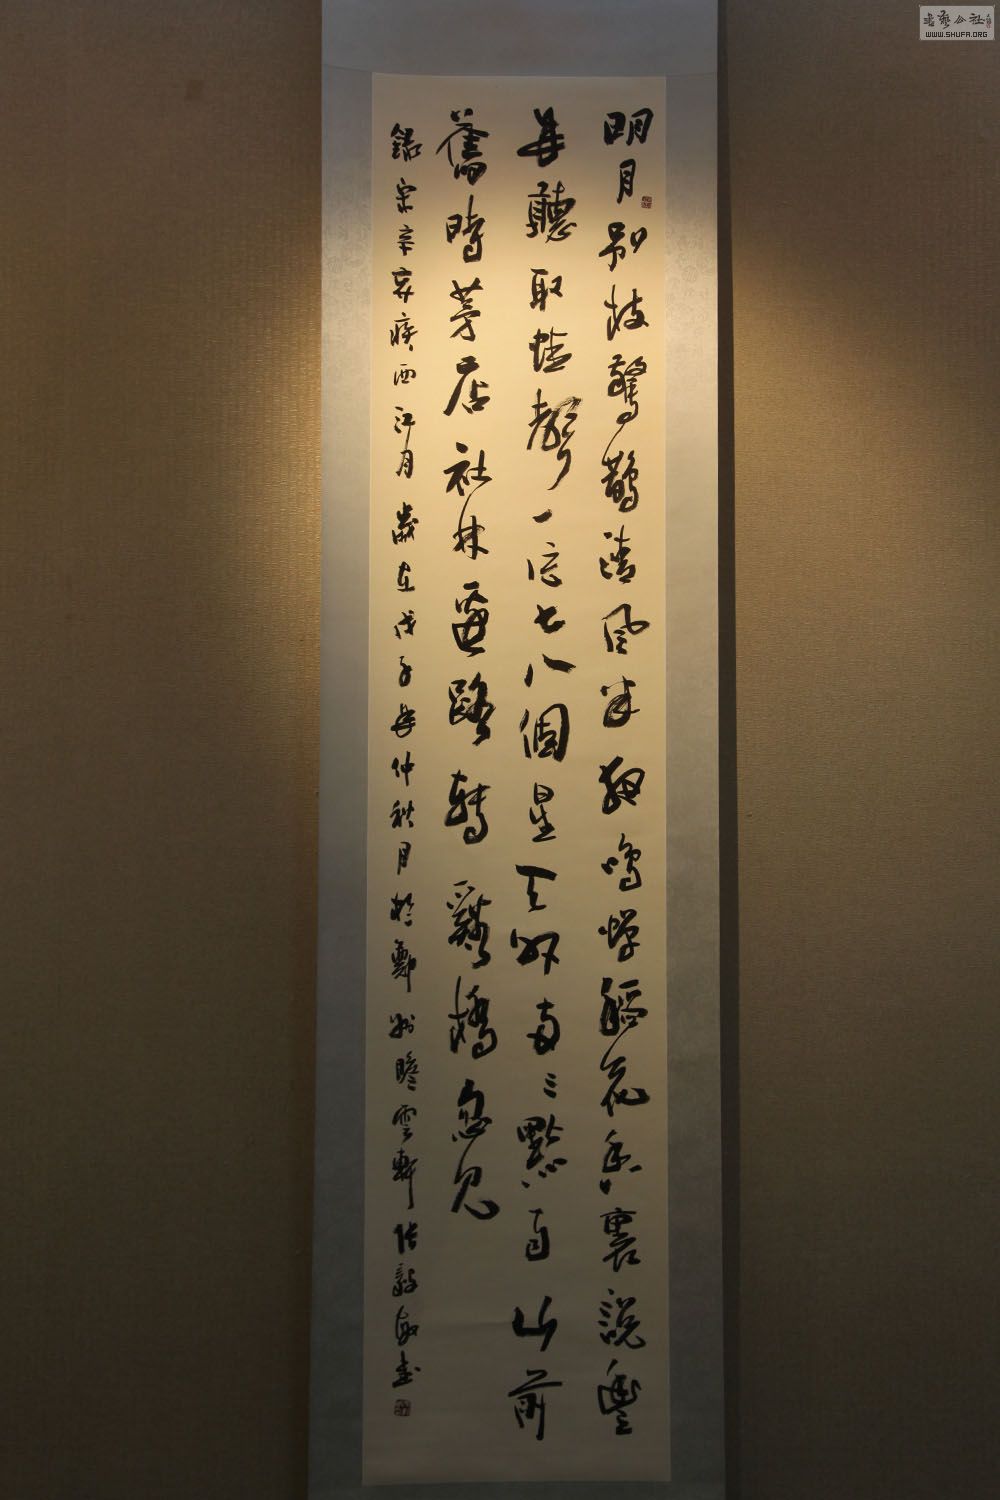 明月别枝驚鵲清風半夜鳴蟬稻花香裏說豐
年聽取蛙聲一片七八個星天外兩三點雨山前
舊時茅店社林邊路轉谿橋忽見
錄宋辛弃疾西江月歲在戊子年仲秋月於鄭州瞻雲軒張毅敏書
書藝公社
WWW.SHUFA.ORG